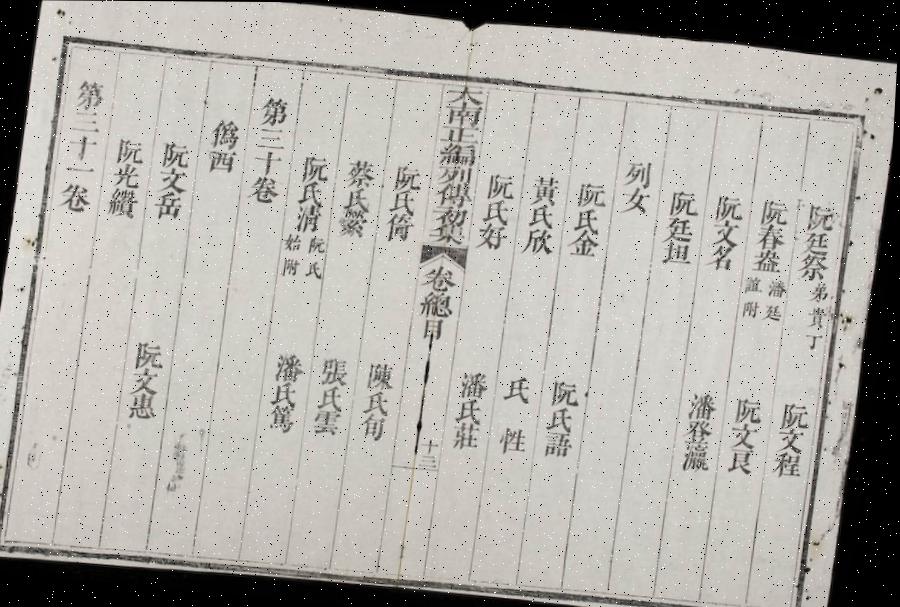 阮廷祭弟貴丁 阮文程
阮春盎潘廷誼附 阮文良
阮文名 潘登瀛
阮廷担
列女
阮氏金 阮氏語
黃氏欣 氏性
阮氏好 潘氏莊
大南正編列傳二集 卷總目 十三
阮氏倚 陳氏旬
蔡氏縈 張氏雲
阮氏清阮氏始附 潘氏篤
第三十卷
僞西
阮文岳 阮文惠
阮光纘
第三十一卷